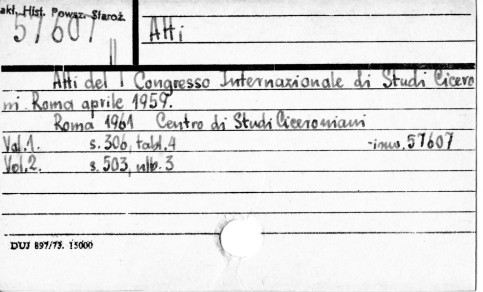 akł. Hist. Powsz. Staroż.
57607 II
Atti
Atti del I Congresso Internazionale di Studi Cicero
ni. Roma aprile 1959.
Roma 1961 Centro di Studi Ciceroniani
Vol.1. s. 306, tabl. 4 -inw. 57607
Vol.2. s. 503, nlb. 3
DUJ 897/73. 15000